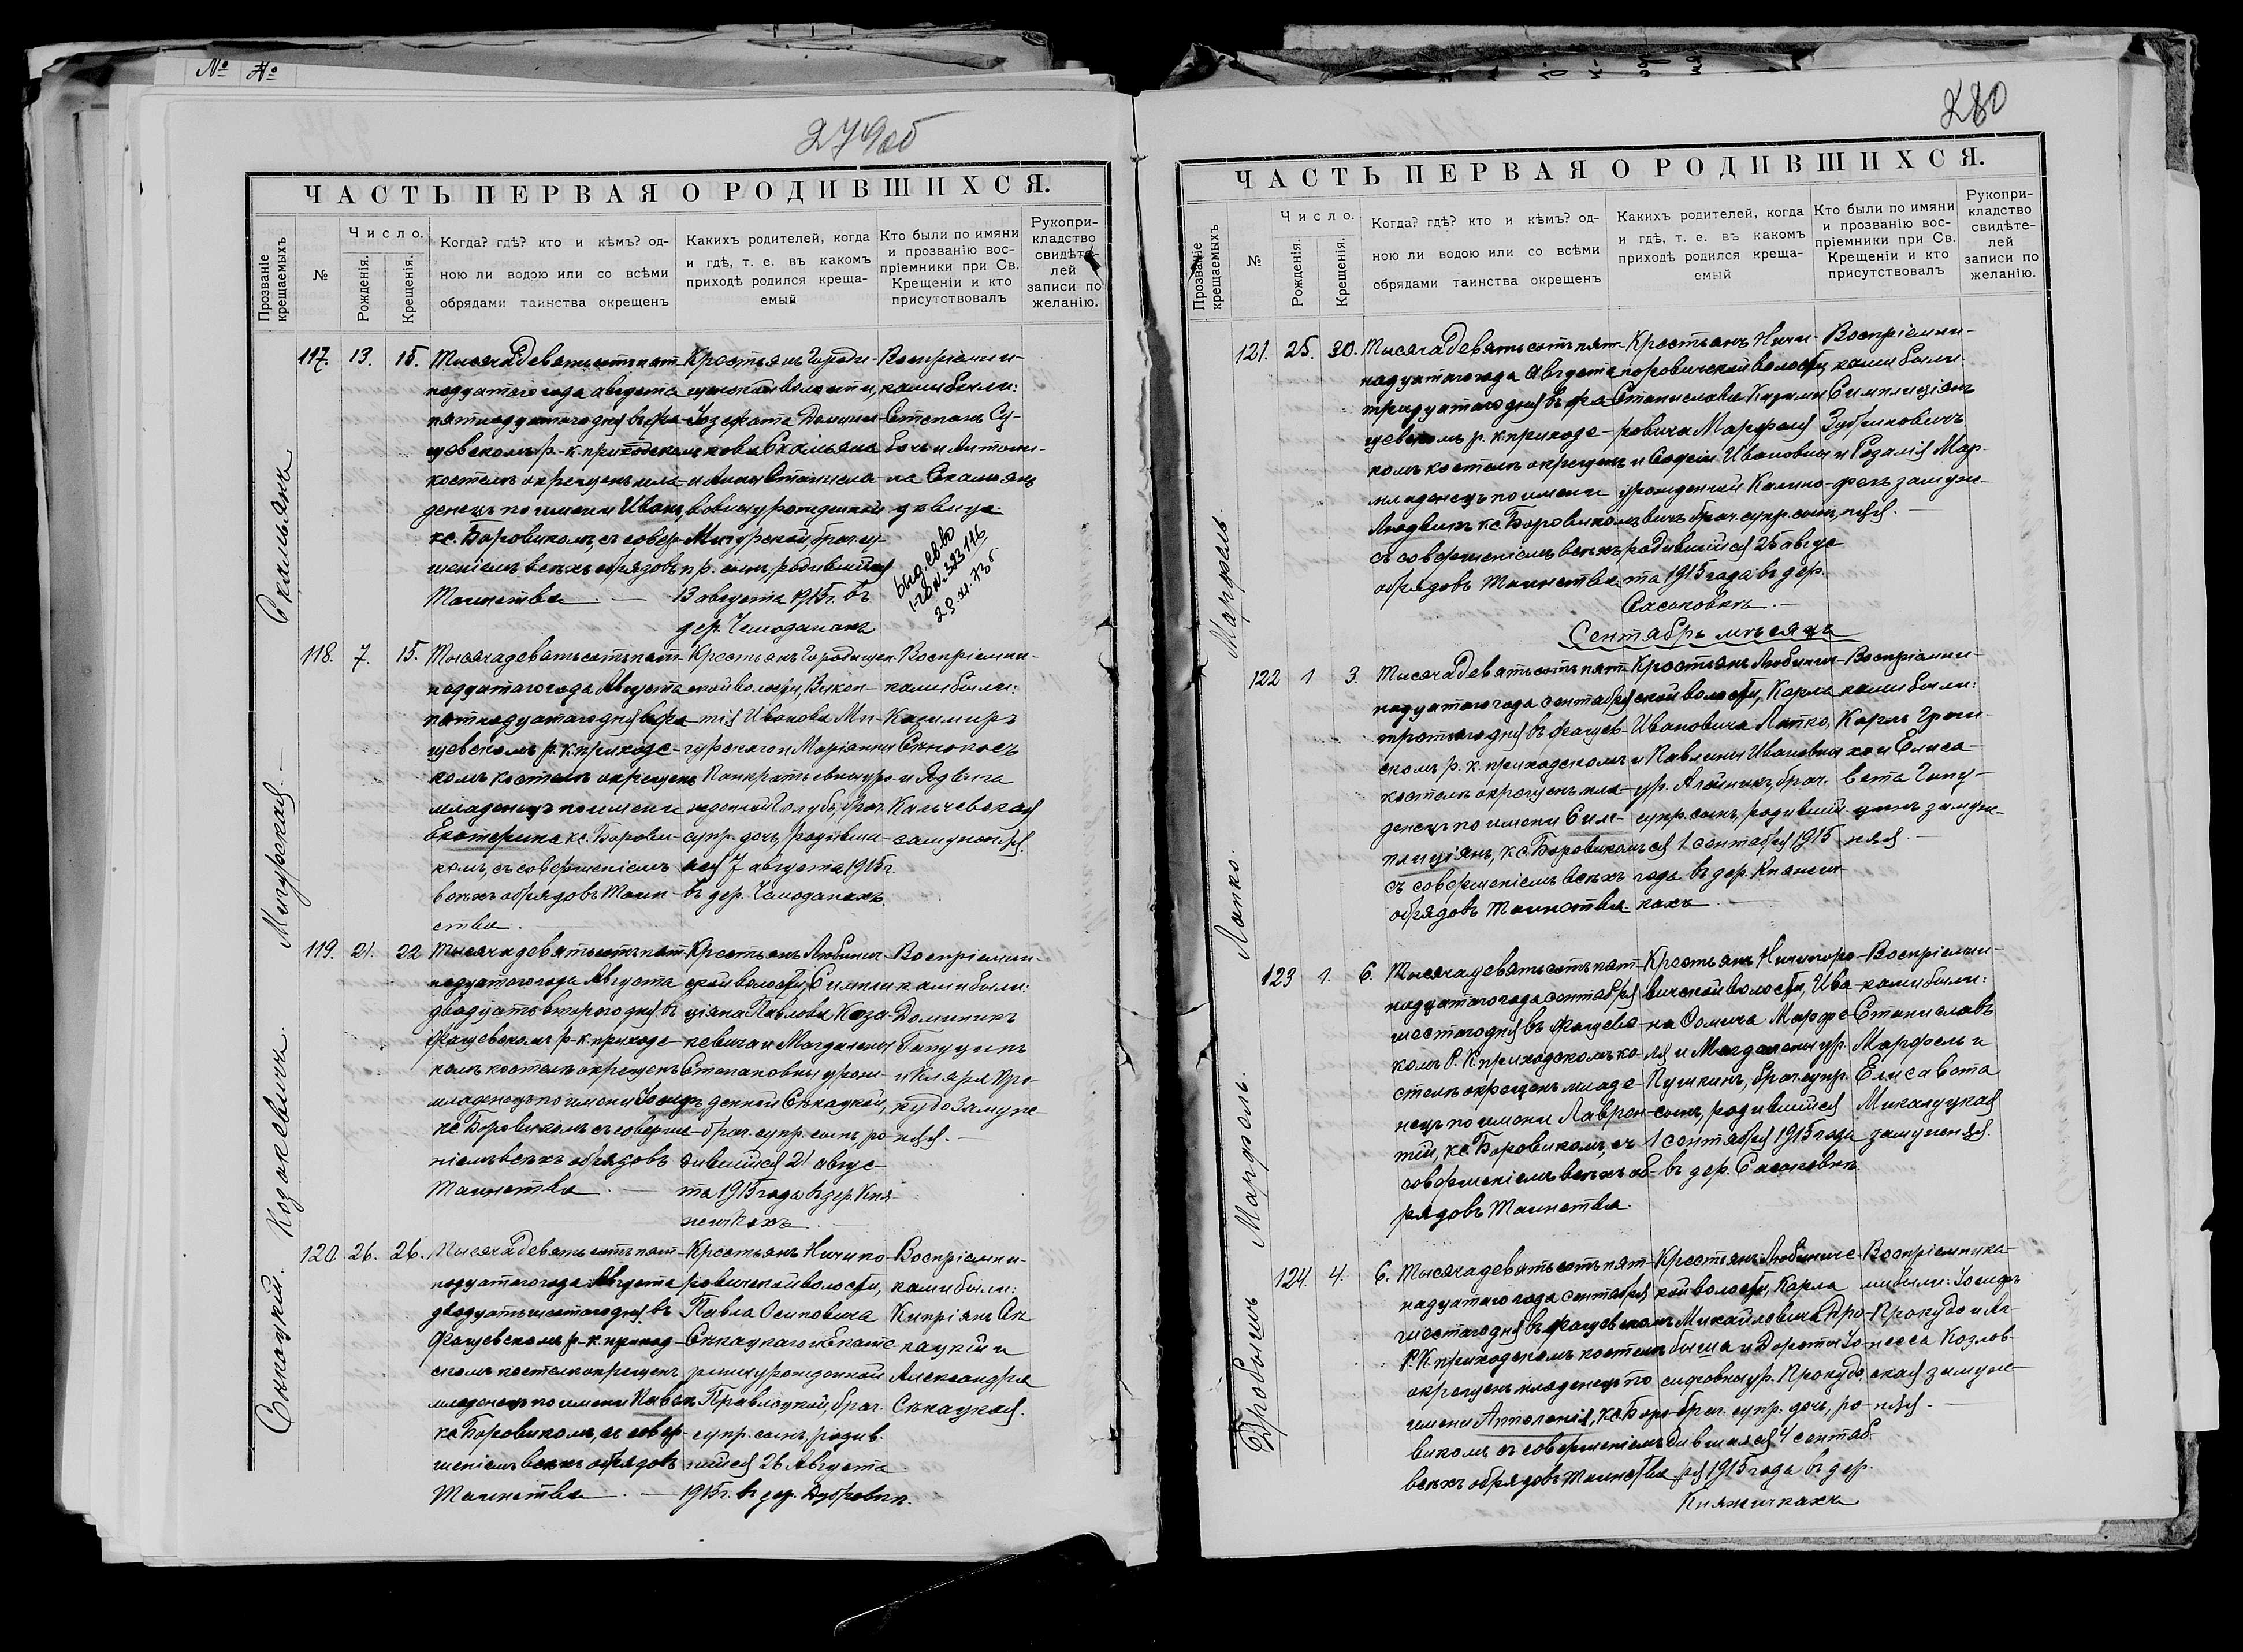 № №
279об
ЧАСТЬ ПЕРВАЯ О РОДИВШИХСЯ.
Прозваніе крещаемыхъ
№
Число.
Рожденія.
Крещенія.
Когда? гдѣ? кто и кѣмъ? од-
ною ли водою или со всѣми
обрядами таинства окрещенъ
Какихъ родителей, когда
и гдѣ, т. е. въ какомъ
приходѣ родился креща-
емый
Кто были по имяни
и прозванію вос-
пріемники при Св.
Крещеніи и кто
присутствовалъ
Рукопри-
кладство
свидѣте-
лей
записи по
желанію.
Скамьянъ
117. 13. 15.
Тысяча девятьсотъ пят-
надцатого года августа
пятнадцатого дня въ Фа-
щевскомъ р.-к. приходскомъ
костелѣ окрещенъ мла-
денецъ по имени Иванъ,
кс. Боровикомъ, съ совер-
шеніемъ всѣхъ обрядовъ
Таинства. —
Крестьянъ Городи-
щенской волости,
Іозефата Домини-
кова Скамьяна
и Анны Станисла-
вовны урожденной
Мигурской, брач. су-
пр. сынъ, родившійся
13 августа 1915 г. въ
дер. Чемоданахъ
Воспріемни-
ками были:
Степанъ Су-
бочь и Антони-
на Скамьянъ
дѣвица.
Выд. св-во
23.XI.73г.
Мигурская. —
118. 7. 15.
Тысяча девятьсотъ пят-
надцатого года Августа
пятнадцатого дня въ Фа-
щевскомъ р. к. приходс-
комъ костелѣ окрещенъ
младенецъ по имени
Екатерина кс. Борови-
комъ, съ совершеніемъ
всѣхъ обрядовъ Таин-
ства.
Крестьянъ Городищен-
ской волости, Викен-
тія Иванова Ми-
гурского и Маріанны
Панкратьевны уро-
жденной Голубь, брач.
супр. дочь, родивша-
яся 7 августа 1915 г.
въ дер. Чемоданахъ.
Воспріемни-
ками были:
Казимиръ
Сѣнокосъ
и Ядвига
Кальчевская
замужняя.
Козакевичъ.
119. 21. 22
Тысяча девятьсотъ пят-
надцатого года Августа
двадцать второго дня въ
Фащевскомъ р-к. приходс-
комъ костелѣ окрещенъ
младенецъ по имени Іосифъ
кс. Боровикомъ съ соверше-
ніемъ всѣхъ обрядовъ
Таинства. —
Крестьянъ Любинич-
ской волости, Симпли-
ціяна Павлова Коза-
кевича и Магдалены
Степановны урож-
денной Сѣкацкой,
брач. супр. сынъ ро-
дившійся 21 авгус-
та 1915 года въ дер. Кня-
жичкахъ.
Воспріемни-
ками были:
Доминикъ
Гапуцинъ
и Кляра Про-
кудо замуж-
няя. —
Сѣкацкій.
120. 26. 26.
Тысяча девятьсотъ пят-
надцатого года Августа
двадцать шестого дня въ
Фащевскомъ р. к. приход-
скомъ костелѣ окрещенъ
младенецъ по имени Павелъ
кс. Боровикомъ, съ совер-
шеніемъ всѣхъ обрядовъ
Таинства. —
Крестьянъ Ничипо-
ровичской волости,
Павла Осиповича
Сѣкацкаго и Екате-
рины урожденной
Правлоцкой, брач.
супр. сынъ, родив-
шійся 26 Августа
1915 г. въ дер. Дубровкѣ.
Воспріемни-
ками были:
Кипріянъ Сѣ-
кацкій и
Александра
Сѣкацкая.
280
ЧАСТЬ ПЕРВАЯ О РОДИВШИХСЯ.
Прозваніе крещаемыхъ
№
Число.
Рожденія.
Крещенія.
Когда? гдѣ? кто и кѣмъ? од-
ною ли водою или со всѣми
обрядами таинства окрещенъ
Какихъ родителей, когда
и гдѣ, т. е. въ какомъ
приходѣ родился креща-
емый
Кто были по имяни
и прозванію вос-
пріемники при Св.
Крещеніи и кто
присутствовалъ
Рукопри-
кладство
свидѣте-
лей
записи по
желанію.
Марфель.
121. 25. 30.
Тысяча девятьсотъ пят-
надцатого года Августа
тридцатого дня въ Фа-
щевскомъ р. к. приходс-
комъ костелѣ окрещенъ
младенецъ по имени
Людвикъ кс. Боровикомъ
съ совершеніемъ всѣхъ
обрядовъ Таинства
Крестьянъ Ничи-
поровичской волости
Станислава Казими-
ровича Марфеля
и Софіи Ивановны
урожденной Калино-
вичъ брач. супр. сынъ,
родившійся 25 авгус-
та 1915 года въ дер.
Сасоновкѣ. —
Воспріемни-
ками были:
Симплиціянъ
Зубриковичъ
и Розалія Мар-
фель замуж-
няя. —
Сентябрь мѣсяцъ
Лапко.
122 1 3.
Тысяча девятьсотъ пят-
надцатого года сентября
третьяго дня въ Фащев-
скомъ р. к. приходскомъ
костелѣ окрещенъ мла-
денецъ по имени Сим-
плиціянъ, кс. Боровикомъ
съ совершеніемъ всѣхъ
обрядовъ Таинства.
Крестьянъ Любинич-
ской волости, Карла
Ивановича Лапко,
и Павлины Ивановны
ур. Алейникъ, брач.
супр. сынъ, родивший-
ся 1 сентября 1915
года въ дер. Княжич-
кахъ. —
Воспріемни-
ками были:
Карлъ
и Елиса-
вета Гапу-
цинъ замуж-
няя. —
Марфель.
123 1. 6.
Тысяча девятьсотъ пят-
надцатого года сентября
шестого дня въ Фащевс-
комъ Р. К. приходскомъ ко-
стелѣ окрещенъ младе-
нецъ по имени Лаврен-
тій, кс. Боровикомъ, съ
совершеніемъ всѣхъ об-
рядовъ Таинства.
Крестьянъ Ничипоро-
вичской волости, Ива-
на Фомича Марфе-
ля и Магдалены ур.
Пушкинъ, брач. супр.
сынъ, родившійся
1 сентября 1915 года
въ дер. Сасоновкѣ.
Воспріемни-
ками были:
Станиславъ
Марфель и
Елисавета
Микалуцкая
замужняя.
Дробышъ
124. 4. 6.
Тысяча девятьсотъ пят-
надцатого года сентября,
шестого дня въ Фащевскомъ
Р. К. приходскомъ костелѣ
окрещенъ младенецъ по
имени Аполонія, кс. Боро-
викомъ съ совершеніемъ
всѣхъ обрядовъ Таинства
Крестьянъ Любиничс-
кой волости, Карла
Михайловича Дро-
быша и Дороты Іо-
сифовны ур. Прокудо,
брач. супр. дочь, ро-
дившаяся 4 сентяб-
ря 1915 года въ дер.
Княжичкахъ
Воспріемника-
ми были: Іосифъ
Прокудо и Аг-
несса Козлов-
ская замуж-
няя. —